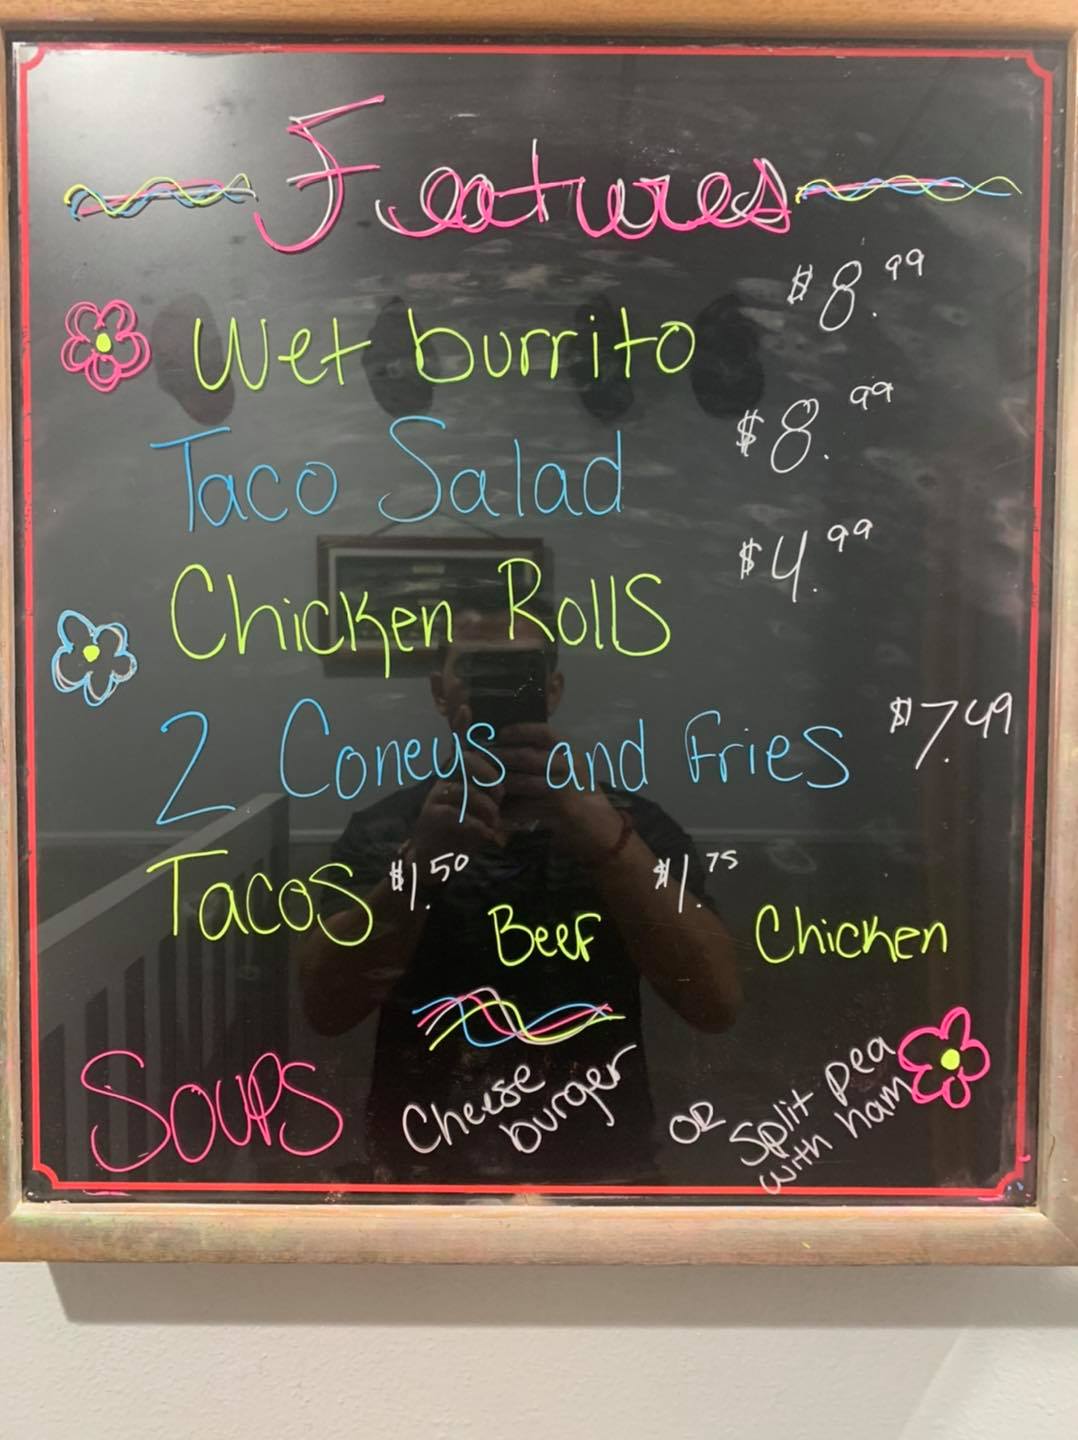 Features
Wet burrito $8.99
Taco Salad $8.99
Chicken Rolls $4.99
2 Coneys and Fries $7.49
Tacos $1.50 Beef $1.75 Chicken
Soups Cheese burger OR Split pea with ham